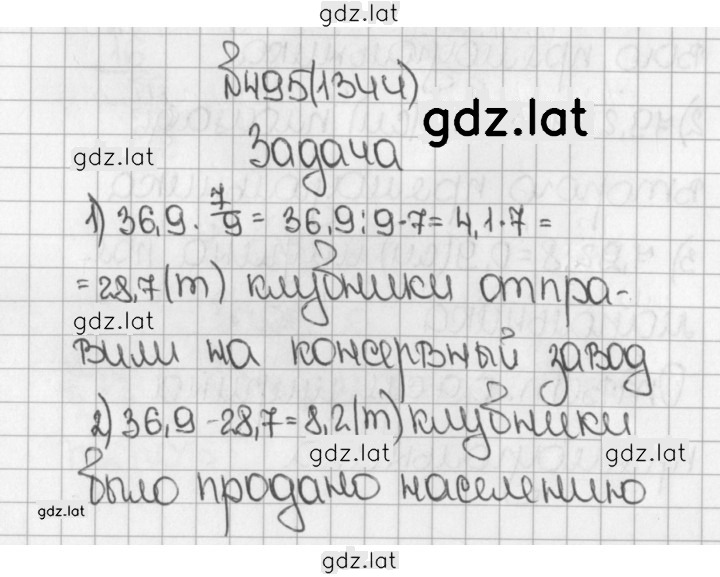 gdz.lat
№495(1344)
gdz.lat
gdz.lat
Задача
1) 36,9 · 7/9 = 36,9:9·7=4,1·7=
=28,7(т) клубники отпра-
gdz.lat
вили на консервный завод
2) 36,9-28,7=8,2(т) клубники
gdz.lat
gdz.lat
было продано населению
gdz.lat
gdz.lat